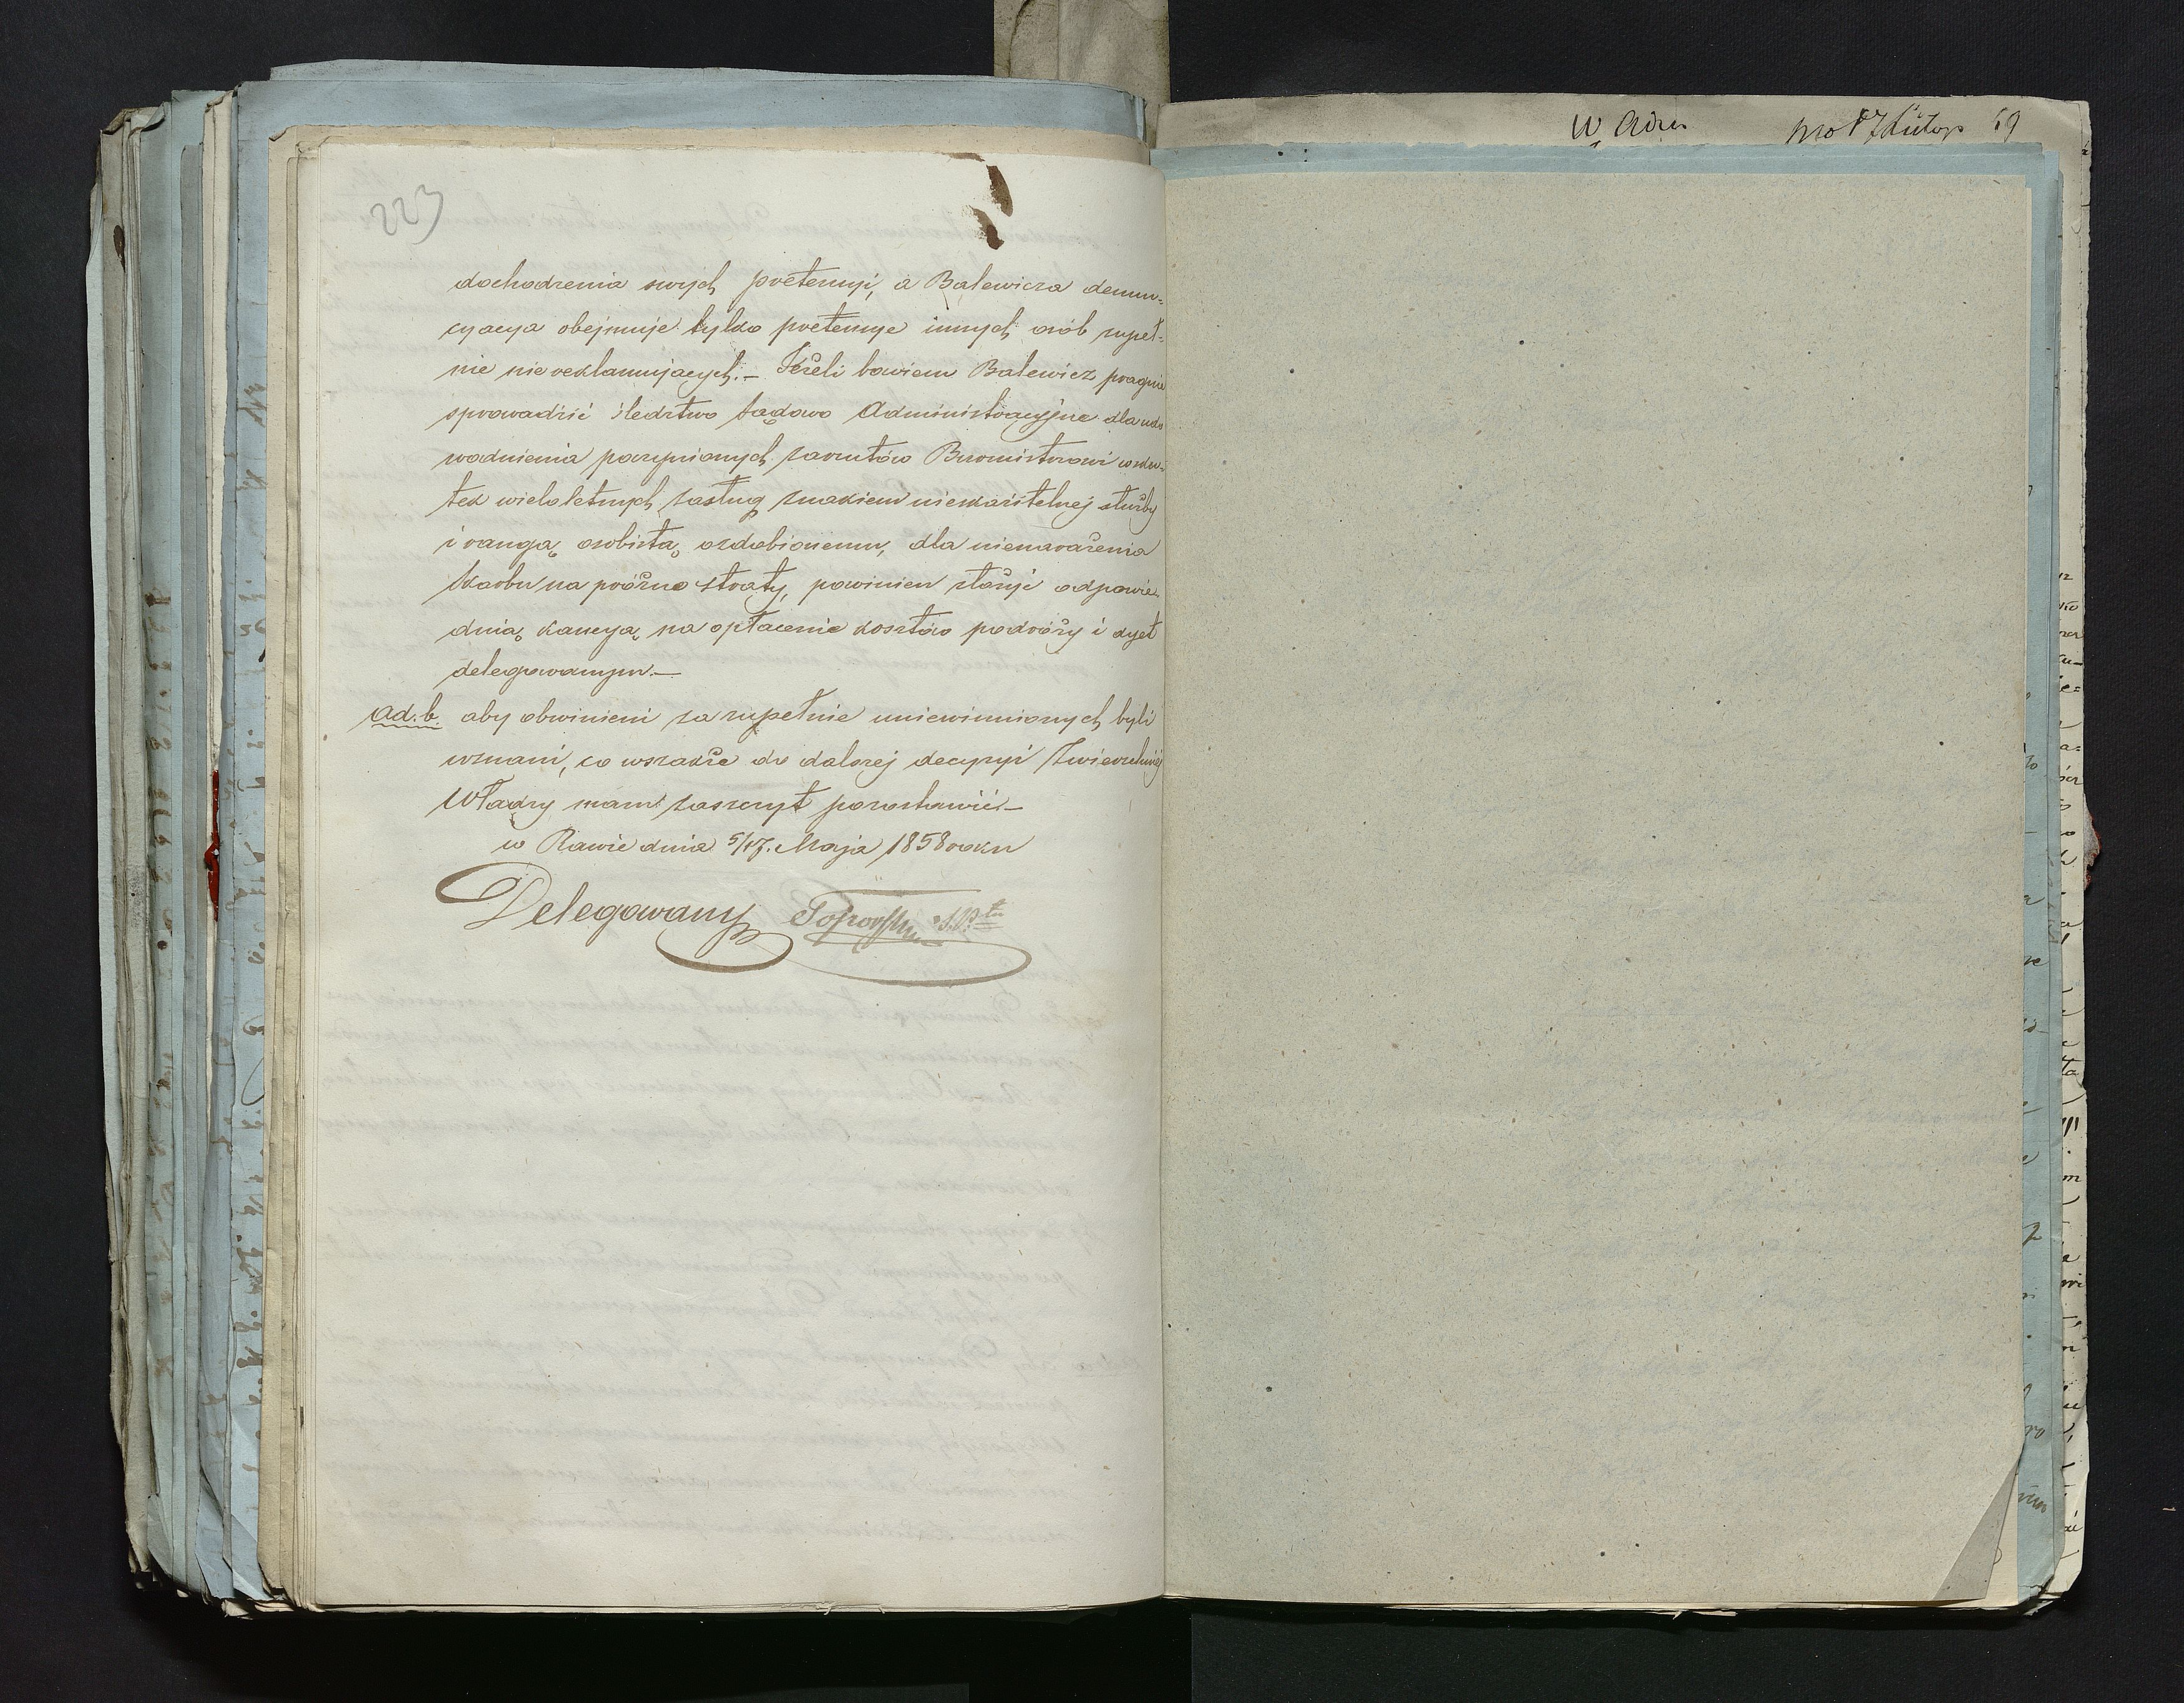 223
dochodzenia swych pretensyi, a Balewicza denun=
cyacya obejmuje tylko pretensye innych osób zupeł=
nie nie reklamujących. – Jeżeli bowiem Balewicz pragnie
sprowadzić śledztwo sądowo Administracyjne dla udo
wodnienia poczynionych zarzutów Burmistrzowi wsku=
tek wieloletnych zasług znakiem nieskazitelnej służby
i rangą osobistą ozdobionemu, dla nienarażenia
skarbu na próżne straty, powinien złożyć odpowie
dnią kaucyą na opłacenie kosztów podróży i dyet
delegowanym. –
ad. b. aby obwinieni za zupełnie uniewinnionych byli
uznani, co wszakże do dalszej decyzyi Zwierzchniej
Władzy mam zaszczyt pozostawić –
w Rawie dnia 5/17. Maja 1858 roku
Delegowany
69